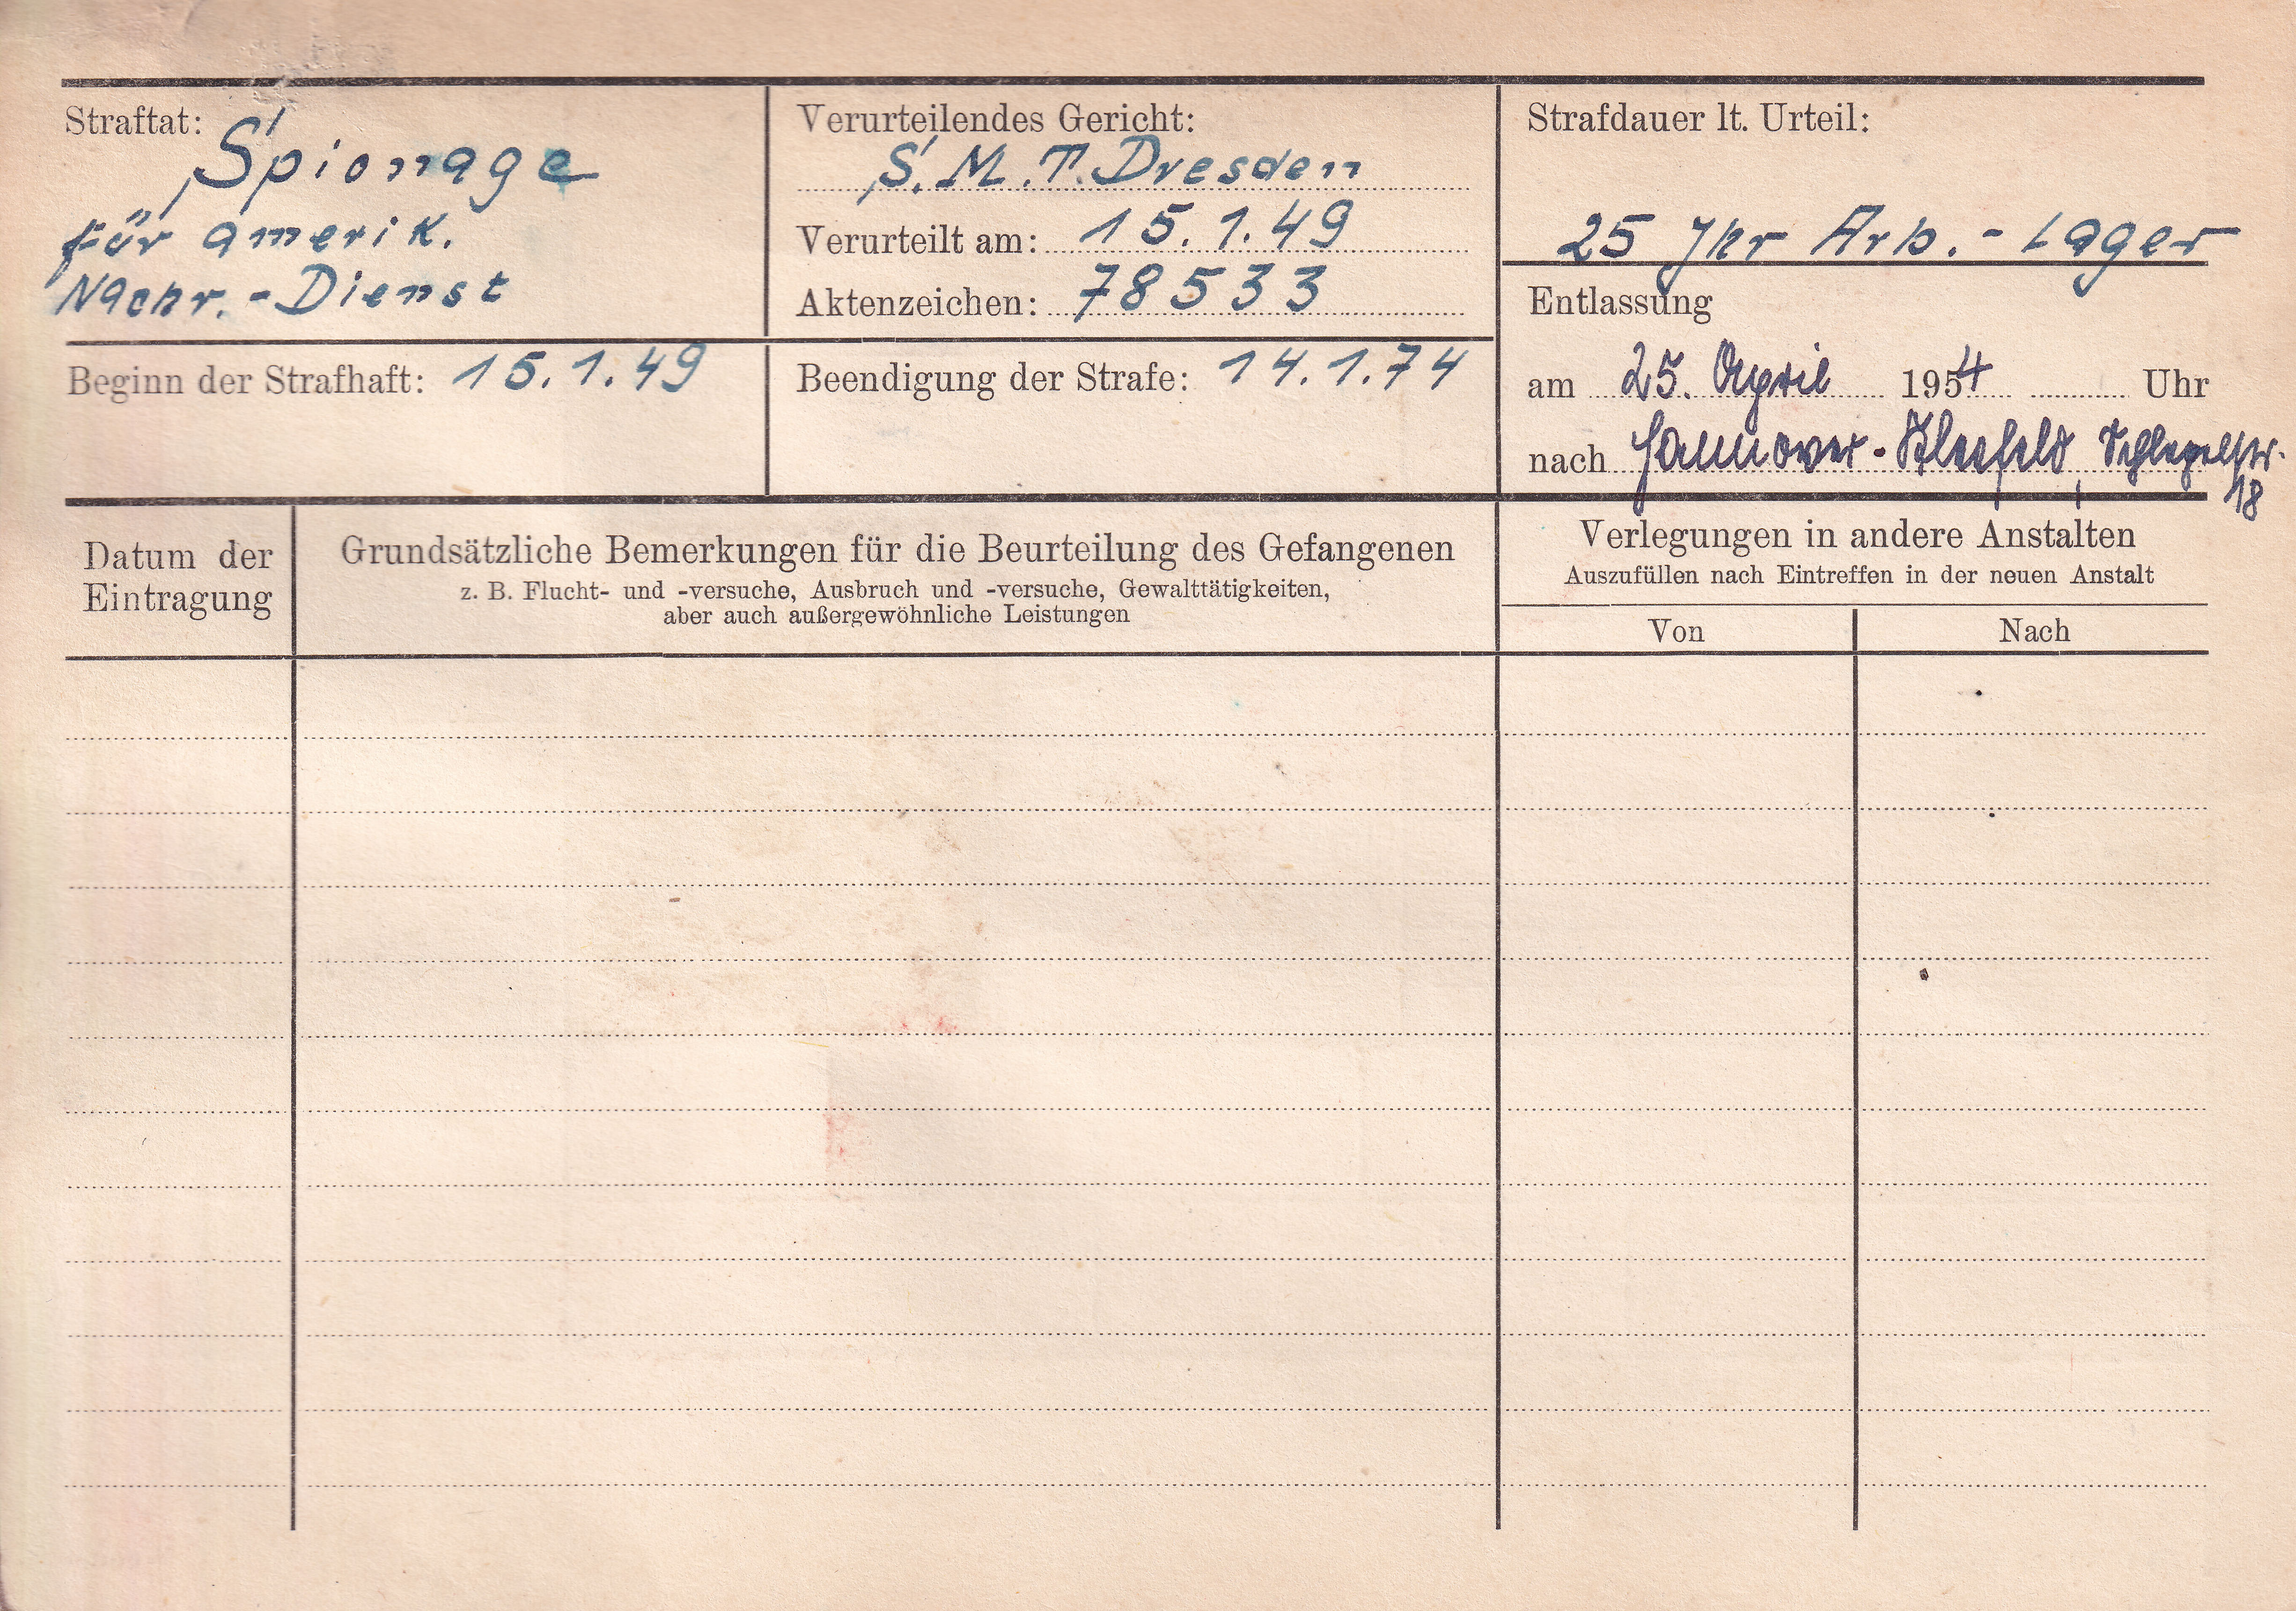 Straftat: Spionage
für amerik.
Nachr.-Dienst
Verurteilendes Gericht:
S.M.T. Dresden
Verurteilt am: 15.1.49
Aktenzeichen: 78533
Strafdauer lt. Urteil:
25 Jhr Arb.-Lager
Entlassung
am 25. April 1954 Uhr
nach Hannover-Kleefeld, Schlegelstr.
18
Beginn der Strafhaft: 15.1.49
Beendigung der Strafe: 14.1.74
Datum der
Eintragung
Grundsätzliche Bemerkungen für die Beurteilung des Gefangenen
z. B. Flucht- und -versuche, Ausbruch und -versuche, Gewalttätigkeiten,
aber auch außergewöhnliche Leistungen
Verlegungen in andere Anstalten
Auszufüllen nach Eintreffen in der neuen Anstalt
Von
Nach